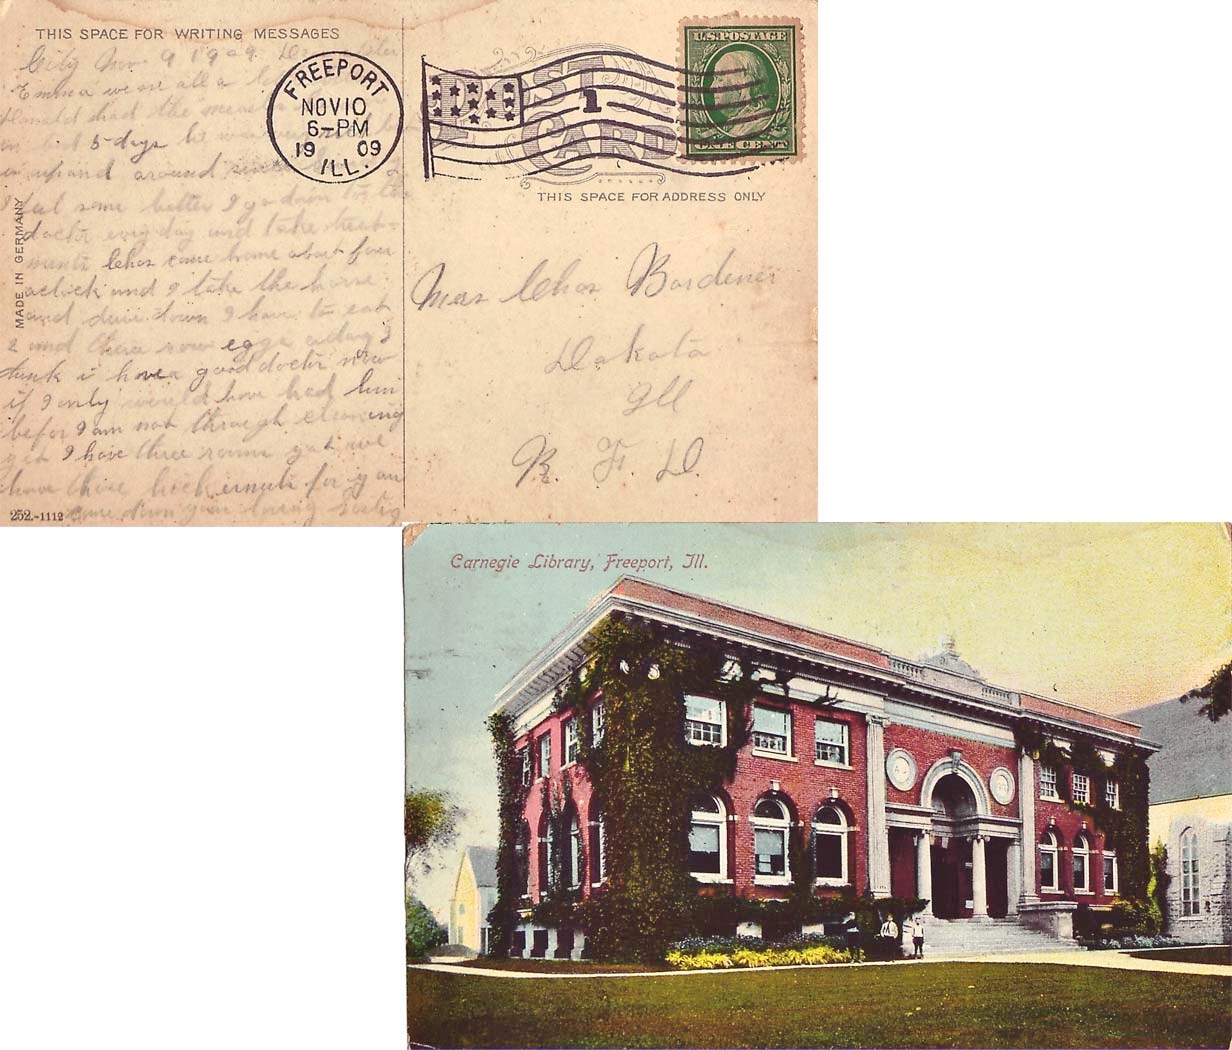 THIS SPACE FOR WRITING MESSAGES
City Nov 9 1909 Dear Sister
Emma we are all a
Donald had the measles
in bed 5 days he was
up and around since
feel some better I go down to the
doctor evry day and take treat-
ments Chas came home about four
oclock and I take the horse
and drive down I have to eat
2 and three raw eggs a day I
think i have a good doctor now
if I only would have had him
befor I am not through cleaning
yet I have three rooms yet we
have three hickernuts for you
come down your loving Sister
MADE IN GERMANY
252.-1112
FREEPORT
NOV 10
6-PM
19 09
ILL.
POST
CARD
1
U.S. POSTAGE
THIS SPACE FOR ADDRESS ONLY
Mrs Chas Bordener
Dakota
Ill
R. F. D.
Carnegie Library, Freeport, Ill.